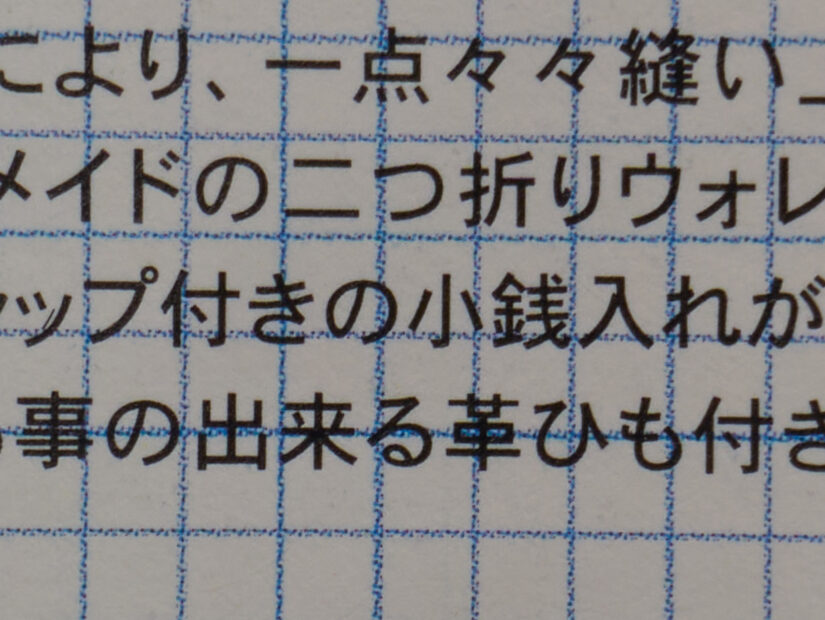 により、一点々々縫い
メイドの二つ折りウォレ
ップ付きの小銭入れが
る事の出来る革ひも付き